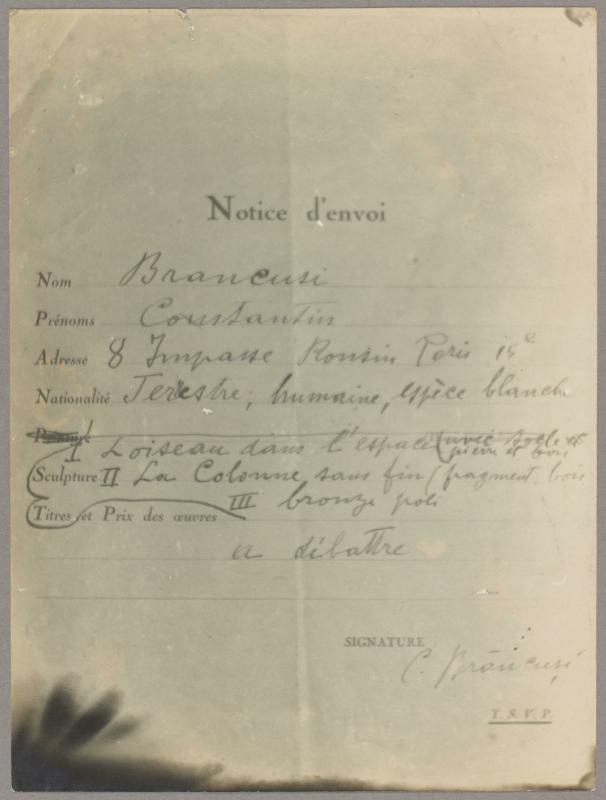 Notice d'envoi
Nom Brancusi
Prénoms Constantin
Adresse 8 Impasse Ronsin Paris 15e
Nationalité Terestre, humaine, espèce blanche
Peinture I Loiseau dans l'espace (avec socle et
pierre et bois
Sculpture II La Colonne sans fin (fragment bois
Titres et Prix des œuvres III bronze poli
a débattre
SIGNATURE
C. Brâncuşi
T. S. V. P.